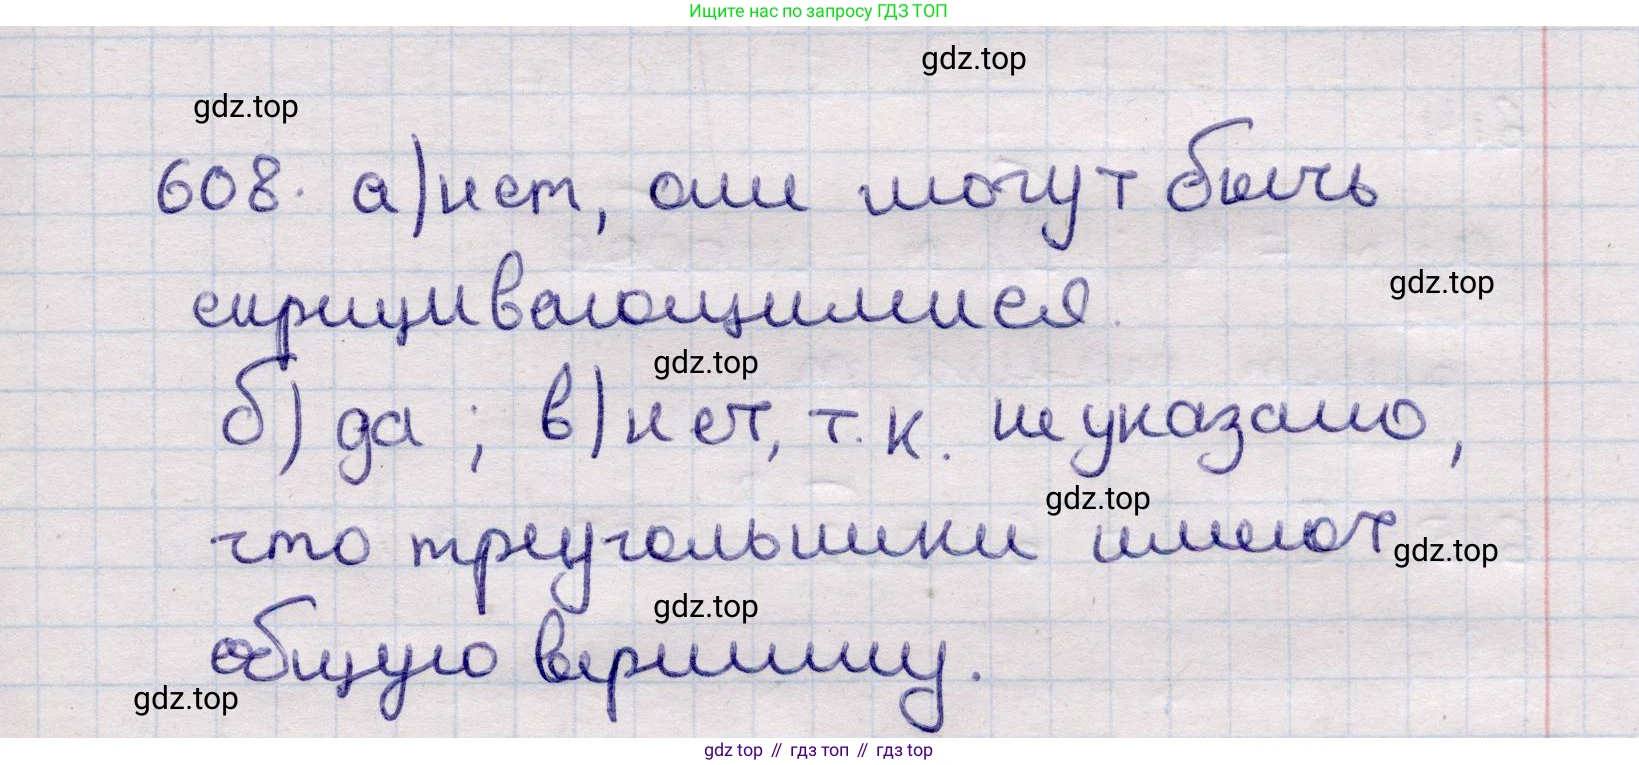 Ищите нас по запросу ГДЗ ТОП
gdz.top
gdz.top
608. а) нет, они могут быть
gdz.top
скрещивающимися.
gdz.top
б) да; в) нет, т.к. не указано,
gdz.top
что треугольники имеют
gdz.top
gdz.top
общую вершину.
gdz.top
gdz top // гдз топ // гдз top